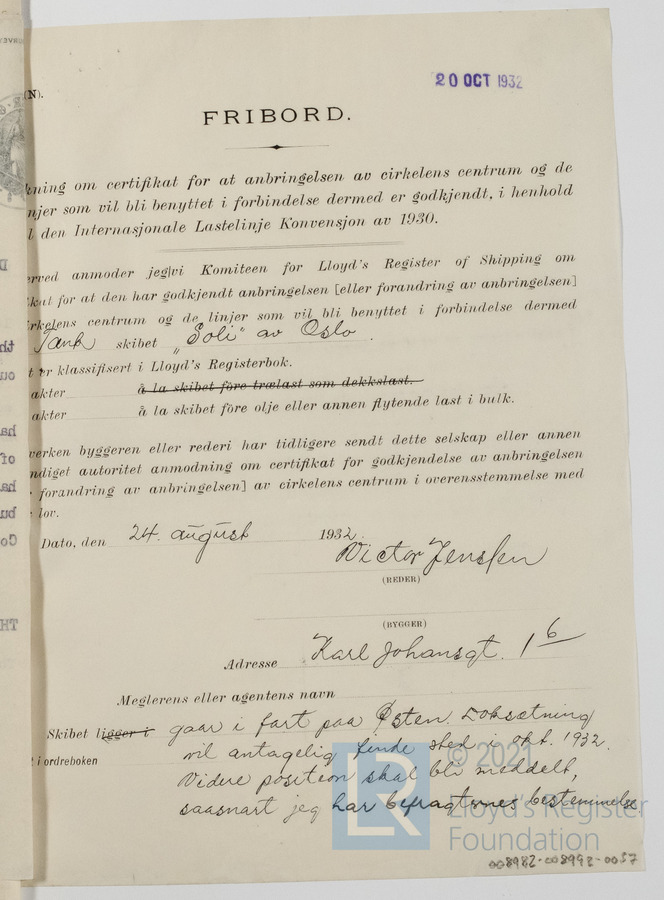 (N).
20 OCT 1932
FRIBORD.
kning om certifikat for at anbringelsen av cirkelens centrum og de
njer som vil bli benyttet i forbindelse dermed er godkjendt, i henhold
l den Internasjonale Lastelinje Konvensjon av 1930.
erved anmoder jeg|vi Komiteen for Lloyd's Register of Shipping om
kat for at den har godkjendt anbringelsen [eller forandring av anbringelsen]
irkelens centrum og de linjer som vil bli benyttet i forbindelse dermed
Tank skibet „Soli" av Oslo.
t er klassifisert i Lloyd's Registerbok.
akter å la skibet före trælast som dekkslast.
akter å la skibet före olje eller annen flytende last i bulk.
verken byggeren eller rederi har tidligere sendt dette selskap eller annen
ndiget autoritet anmodning om certifikat for godkjendelse av anbringelsen
forandring av anbringelsen] av cirkelens centrum i overensstemmelse med
lov.
Dato, den 24. august 1932.
Victor Jenssen
(REDER)
(BYGGER)
Adresse Karl Johansgt. 16
Meglerens eller agentens navn
Skibet ligger i gaar i fart paa Østen. Doksætning
t i ordreboken vil antagelig finde sted i okt. 1932.
Videre position skal bli meddelt,
saasnart jeg har befragternes bestemmelse
© 2021
LR
Lloyd's Register
Foundation
008982-008992-0057